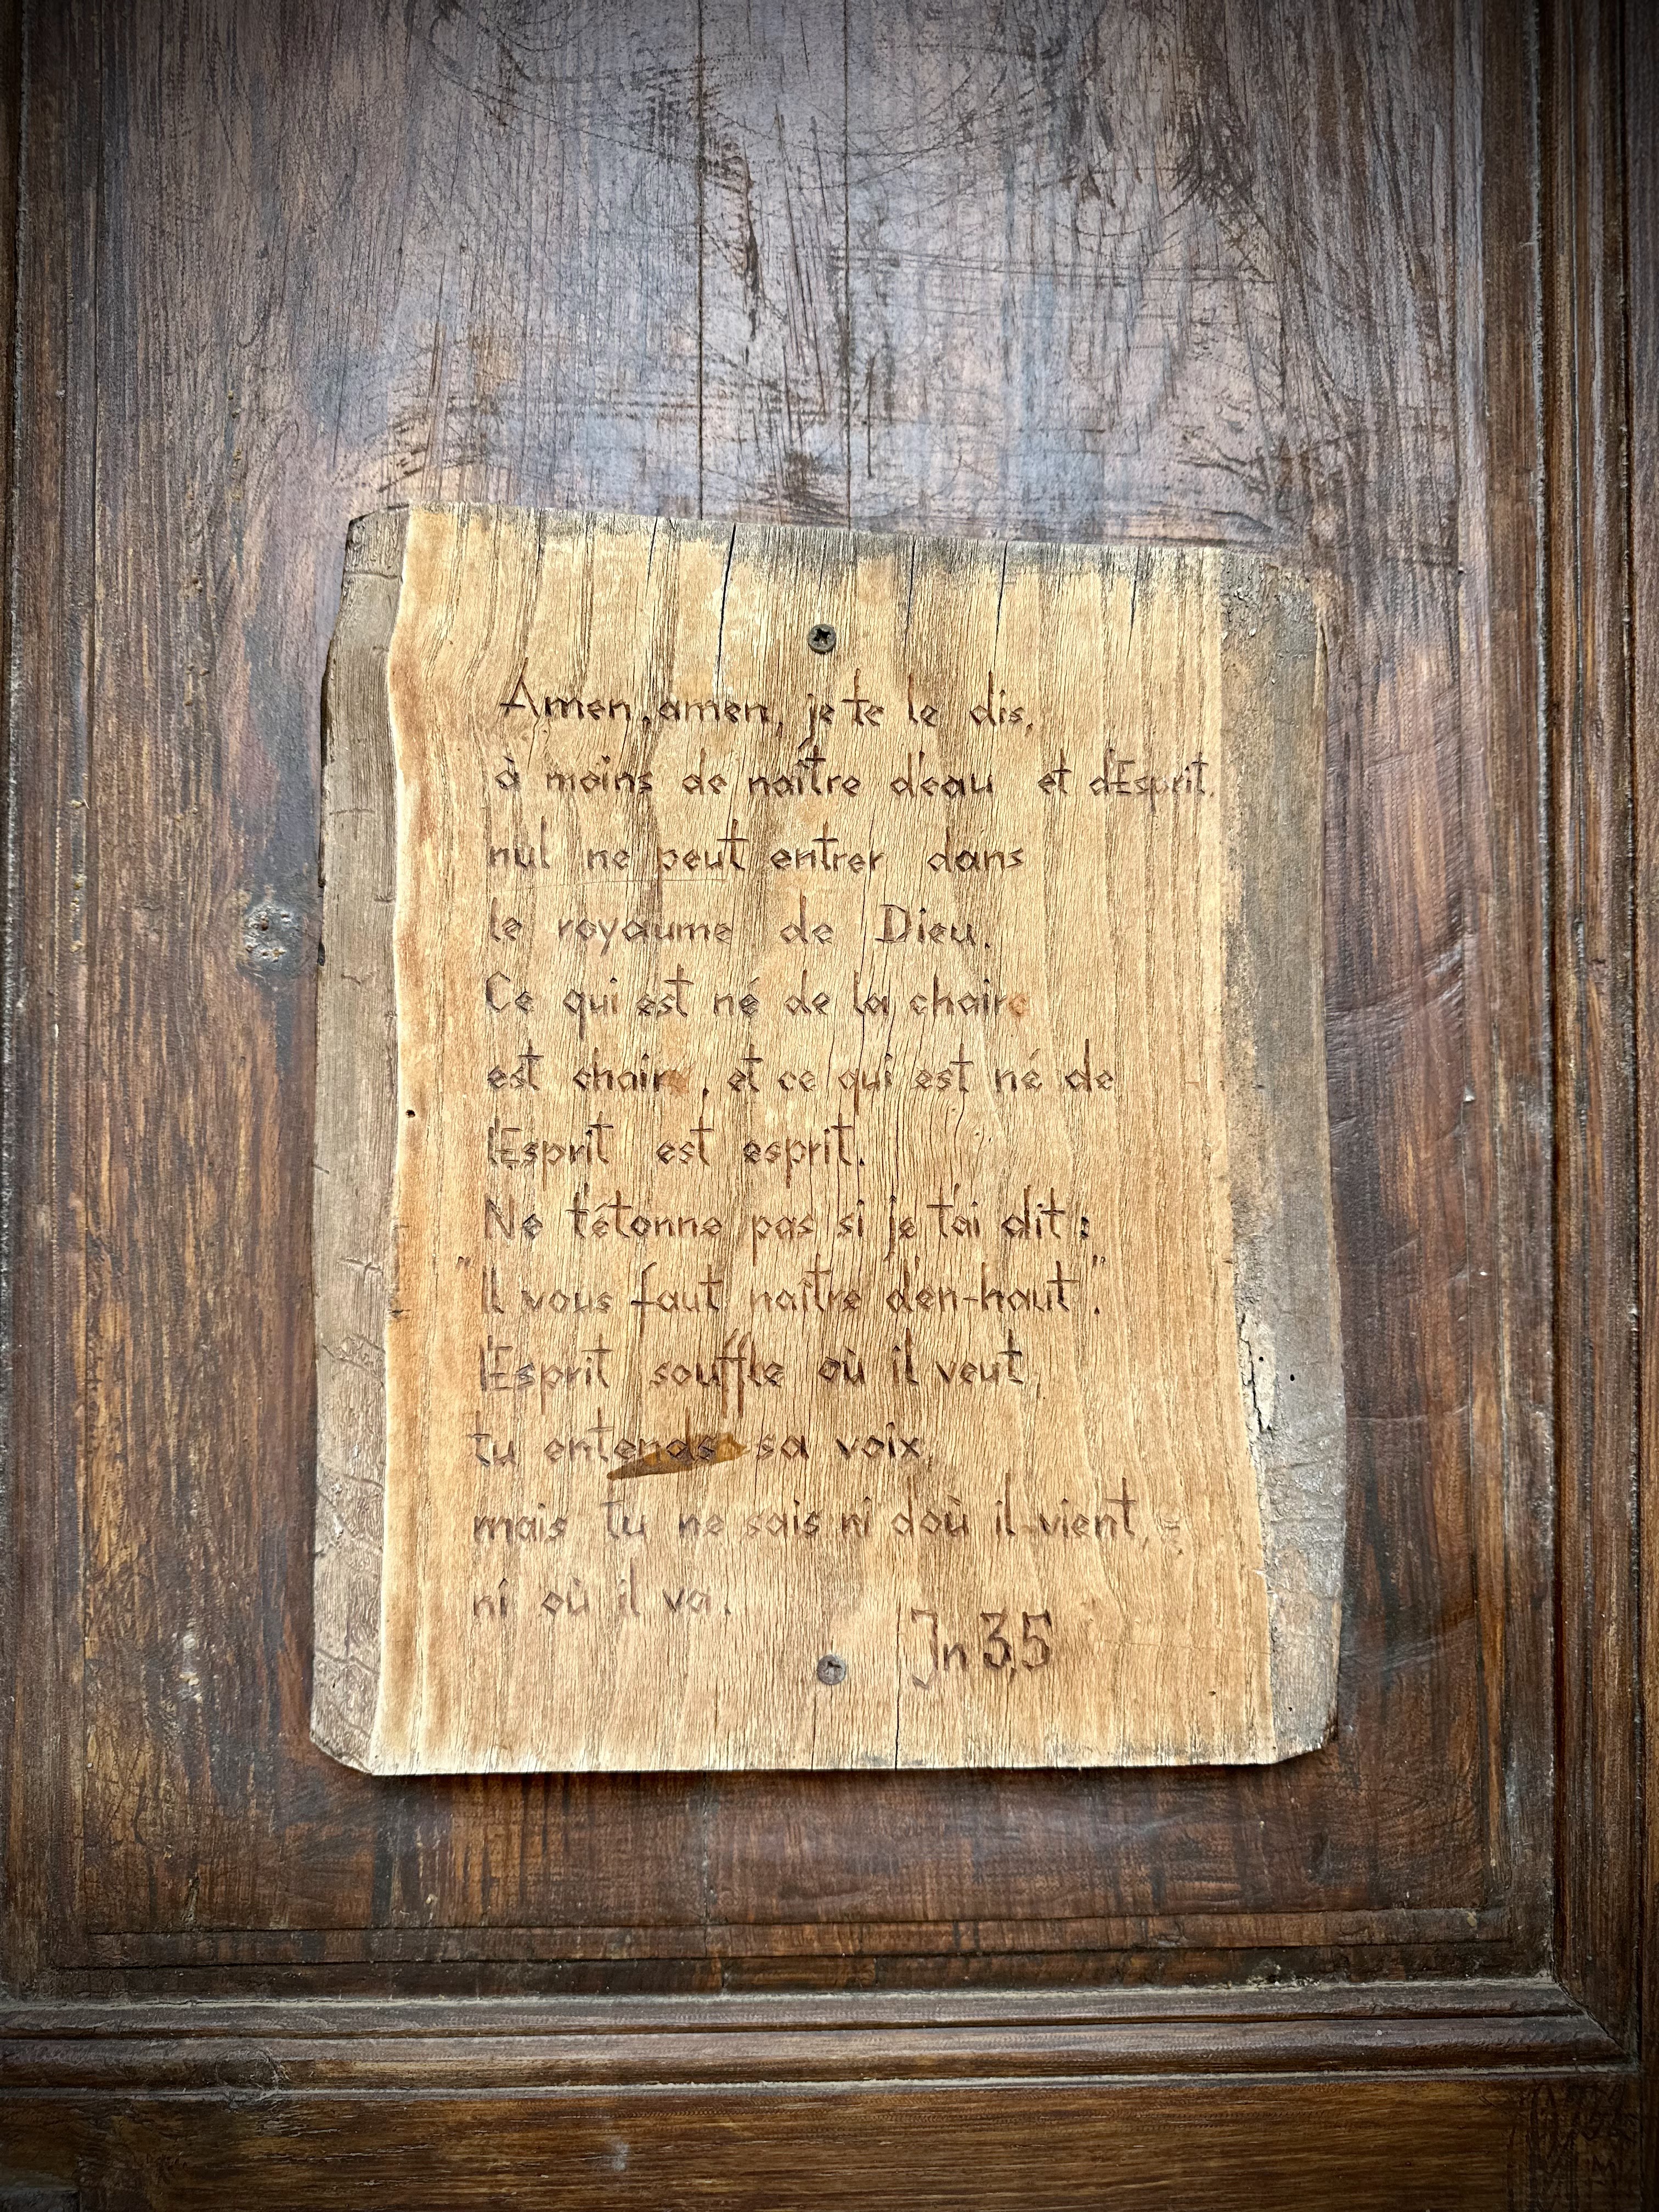 Amen, amen, je te le dis,
à moins de naître d'eau et d'Esprit,
nul ne peut entrer dans
le royaume de Dieu.
Ce qui est né de la chair
est chair, et ce qui est né de
l'Esprit est esprit.
Ne t'étonne pas si je t'ai dit :
"Il vous faut naître d'en-haut".
l'Esprit souffle où il veut,
tu entends sa voix,
mais tu ne sais ni d'où il vient,
ni où il va.
Jn 3,5